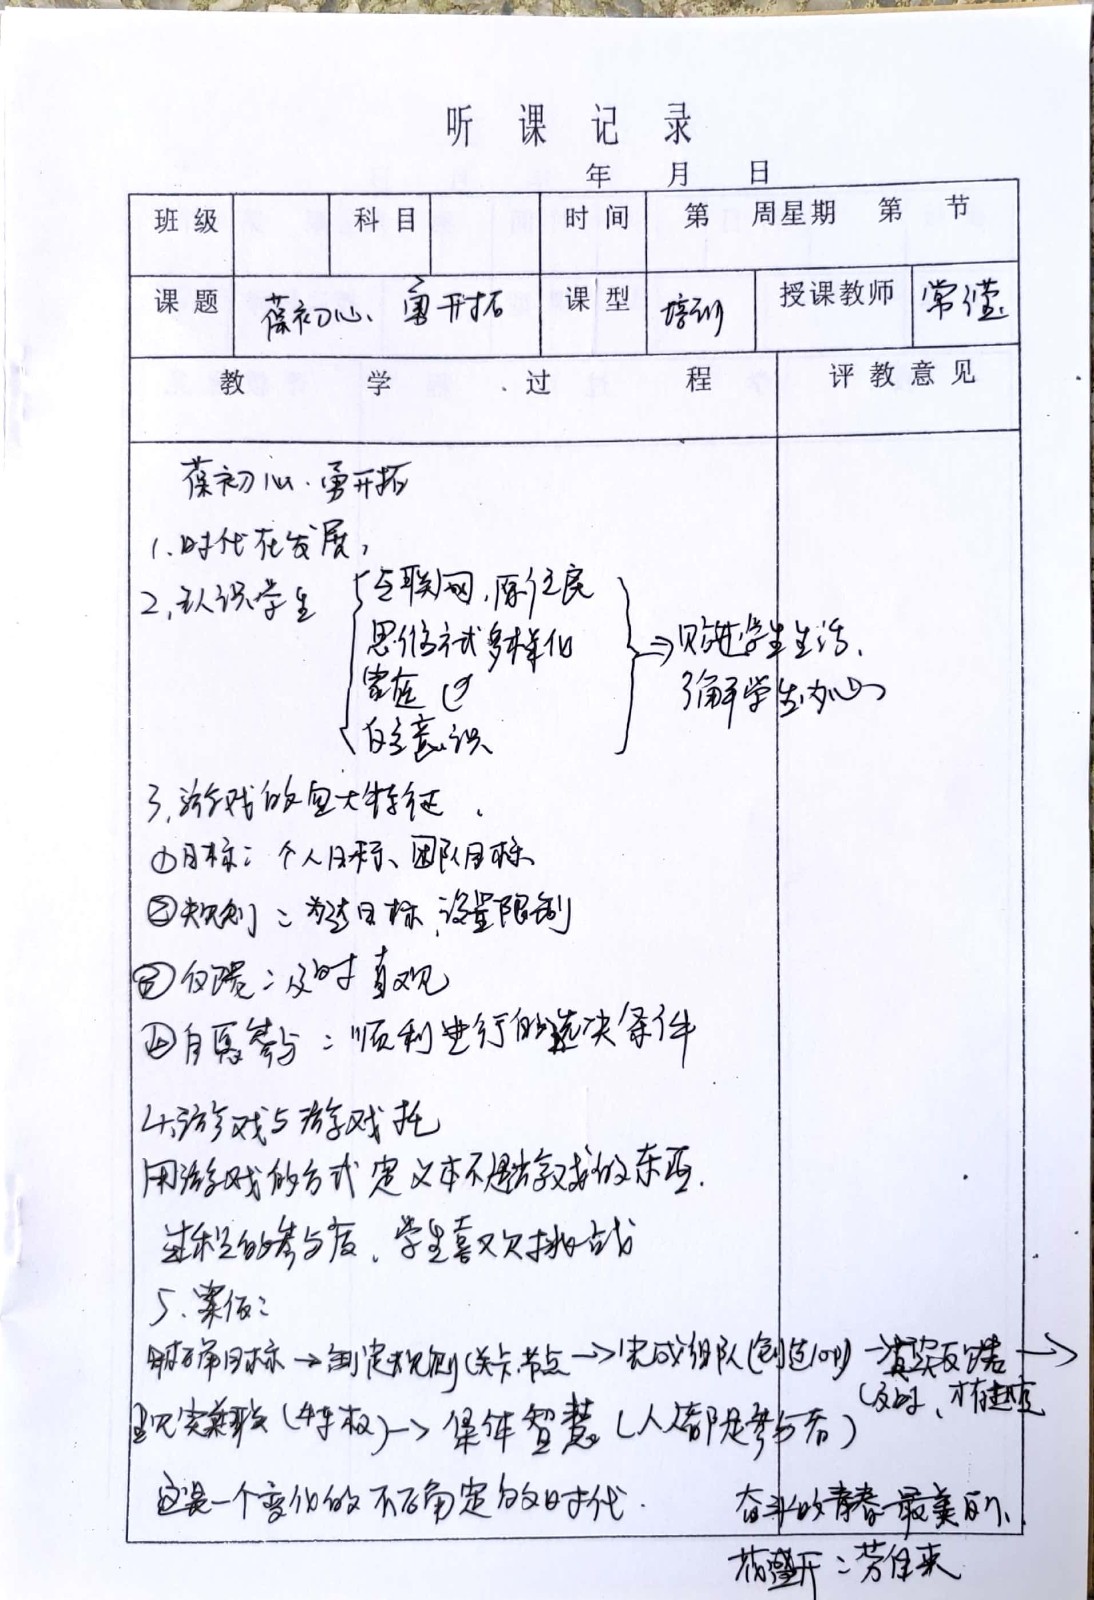 听课记录
年 月 日
班级 科目 时间 第 周星期 第 节
课题 葆初心、勇开拓 课型 培训 授课教师 常滢
教 学 过 程 评教意见
葆初心·勇开拓
1、时代在发展,
2、认识学生 互联网,原住民
思维方式多样化
家庭
自主意识
⇒ 贴进学生生活,
了解学生内心
3、游戏的四大特征.
①目标: 个人目标、团队目标
②规则: 为达目标,设置限制
③反馈: 及时 直观
④自愿参与: 顺利进行的先决条件
4、游戏与游戏化
用游戏的方式定义本不是游戏的东西.
过程的参与度、学生喜欢挑战
5、案例:
明确目标 → 制定规则(关卡、节点 → 完成组队(创造 → 真实反馈 →
(及时、才有
(特权) → 集体智慧 (人人都是参与者)
这是一个变化的不确定的时代.
奋斗的青春最美的、
花盛开: 芳自来